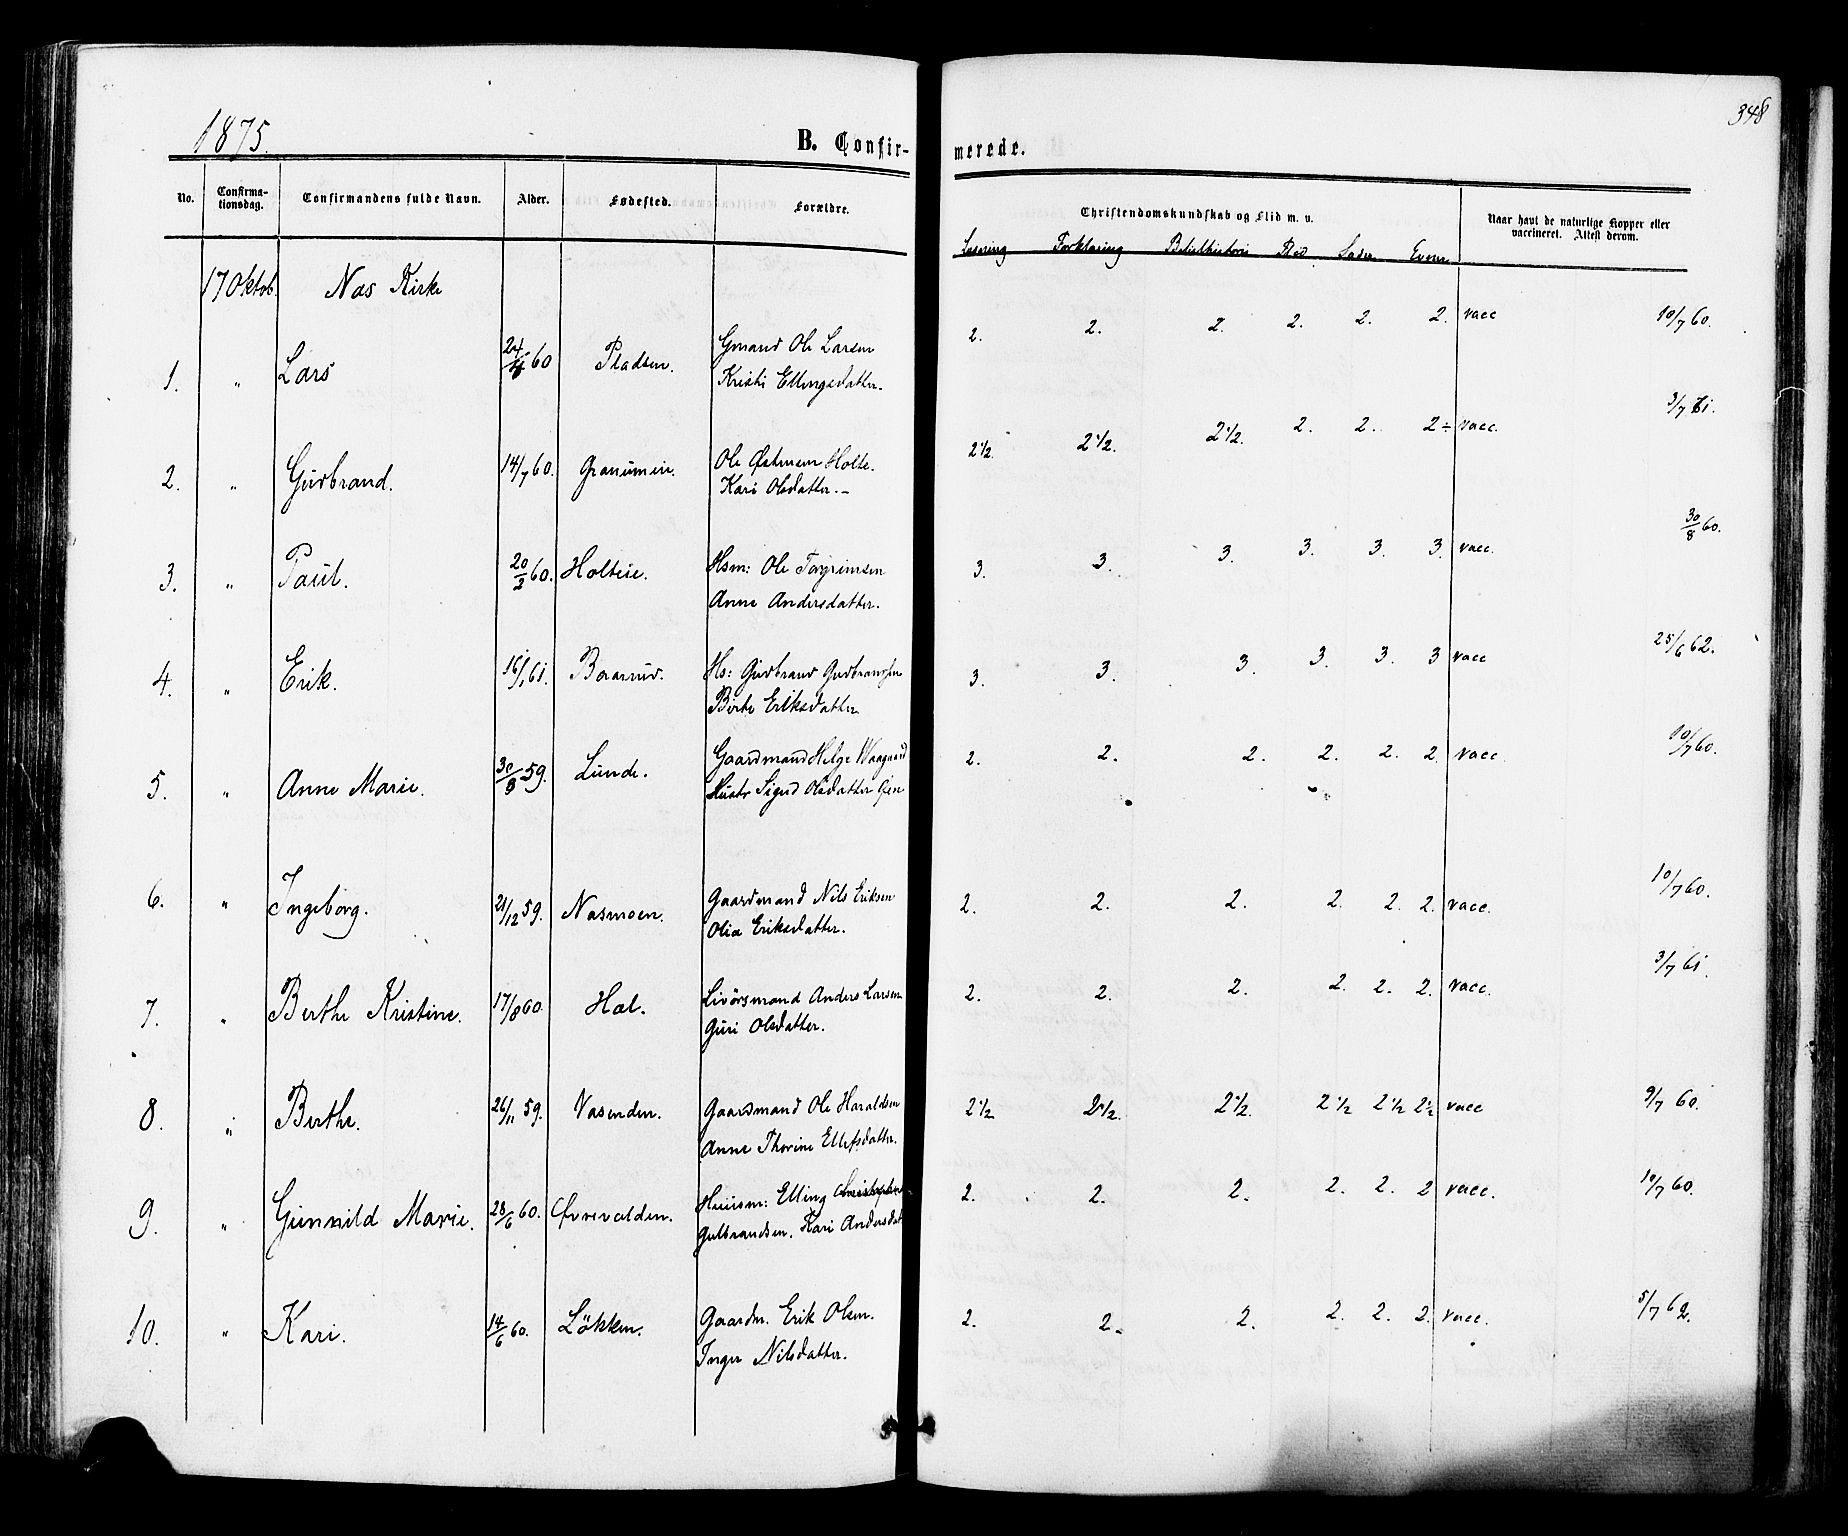 348
1875.
B. Confir-
merede.
No.
Confirma-
tionsdag.
Confirmandens fulde Navn.
Alder.
Fødested.
Forældre.
Christendomskundskab og Flid m. v.
Naar havt de naturlige Kopper eller
vaccineret. Attest derom.
Læsning Forklaring Bibelhistorie Flid Sæder Evner
17 Oktob. Næs Kirke
1. " Lars 24/4 60 Pladsen. Gmand Ole Larsen
Kristi Ellingsdatter.
2. 2. 2. 2. 2. 2. vacc 10/7 60.
2. " Gudbrand. 14/7 60. Granumeie. Ole Østensen Holte.
Kari Olsdatter. –
2 1/2. 2 1/2. 2 1/2. 2. 2. 2 ÷ vacc. 3/7 61.
3. " Paul. 20/2 60. Holteie. Hsm: Ole Torgrimsen
Anne Andersdatter.
3. 3. 3. 3. 3. 3. vacc. 30/8 60.
4. " Erik. 16/1 61. Bararud. Hs: Gudbrand Gudbrandsen
Berte Eriksdatter
3. 3. 3. 3. 3. 3 vacc 25/6 62.
5. " Anne Marie. 30/9 59. Lunde. Gaardmand Helge Waagaard
Hustr Sigrid Olsdatter Øen
2. 2. 2. 2. 2. 2. vacc. 10/7 60.
6. " Ingeborg. 21/12 59. Næsmoen. Gaardmand Nils Eriksen
Olia Eriksdatter.
2. 2. 2. 2. 2. 2. vacc. 10/7 60.
7. " Berthe Kristine. 17/8 60. Hæl. Livörsmand Anders Larsen
Guri Olsdatter.
2. 2. 2. 2. 2. 2. vacc. 3/7 61.
8. " Berthe. 26/11 59. Vasenden. Gaardmand Ole Haraldsen
Anne Thorine Ellefsdatter.
2 1/2 2 1/2. 2 1/2. 2 1/2 2 1/2 2 1/2 vacc 9/7 60.
9. " Gunnild Marie. 28/6 60. Øvrevolden. Huusm: Elling
Gulbrandsen. Kari Andersdat
2. 2. 2. 2. 2. 2 vacc. 10/7 60.
10. " Kari. 14/6 60. Lökken. Gaardm. Erik Olsen.
Inger Nilsdatter.
2. 2. 2. 2. 2. 2. vacc. 5/7 62.